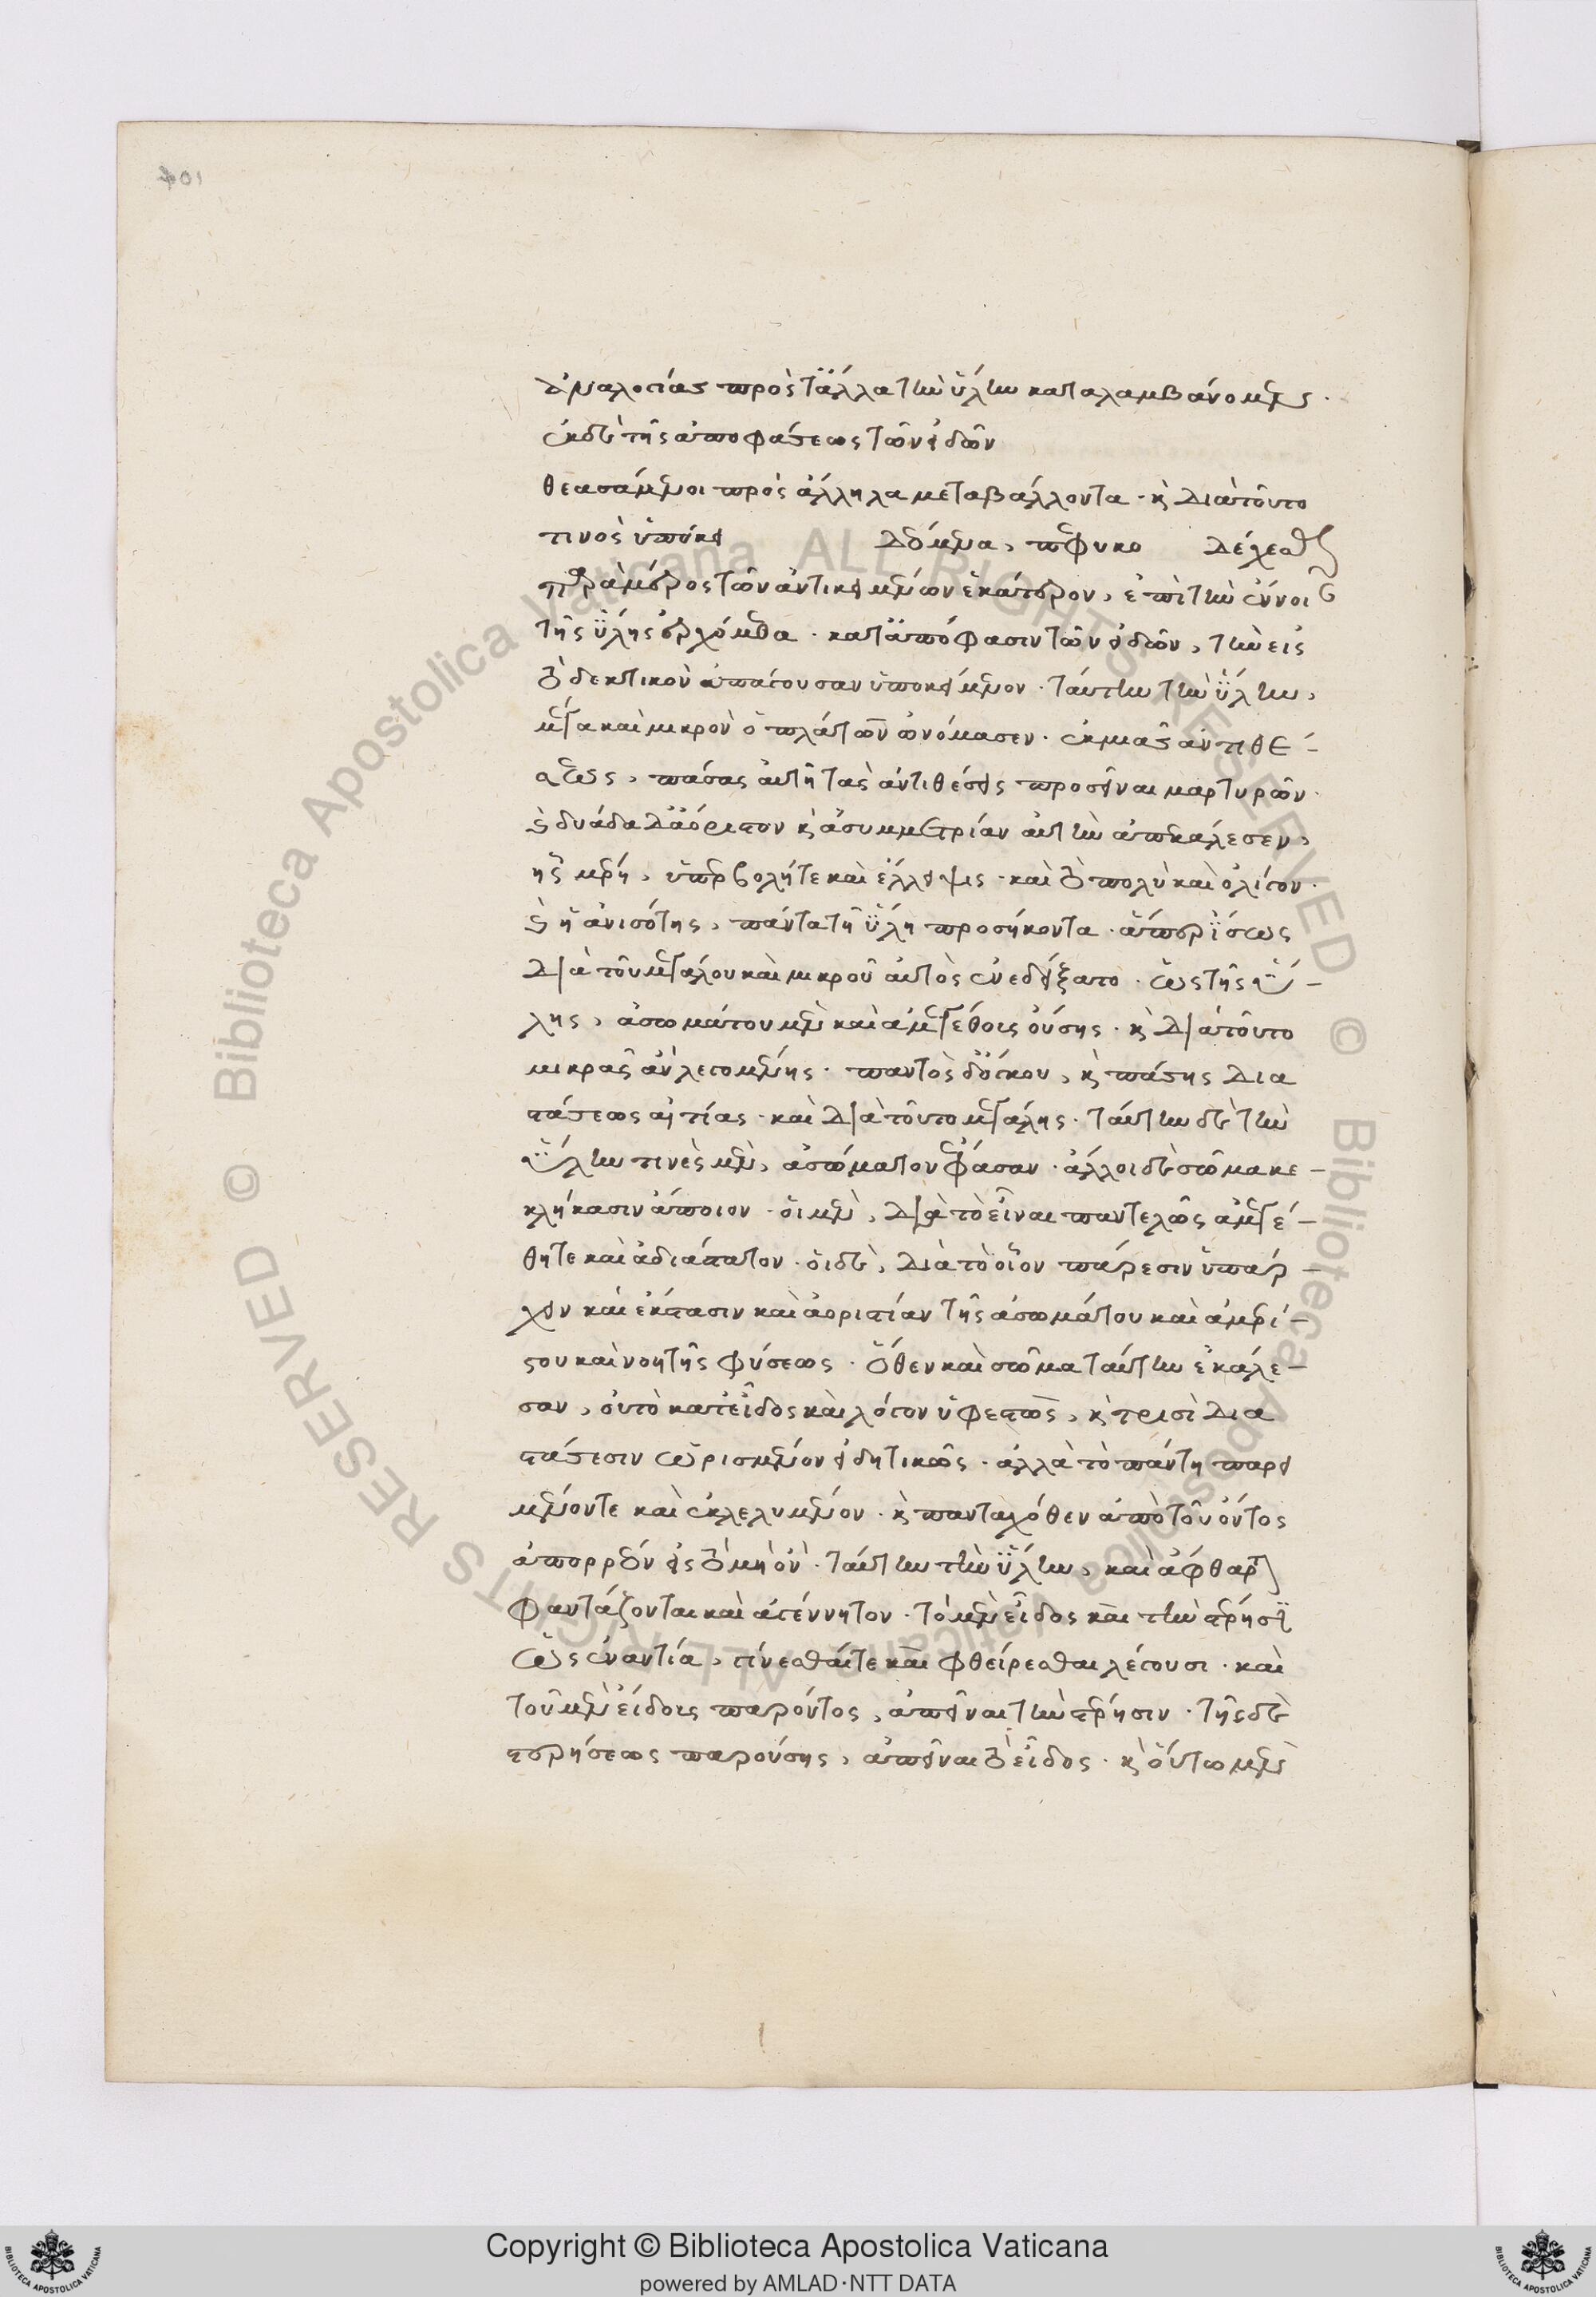 ἀναλογίας πρὸς τἄλλα τὴν ὕλην καταλαμβάνομεν.
ἐκ δὲ τῆς ἀποφάσεως τῶν εἰδῶν
θεασάμενοι πρὸς ἄλληλα μεταβάλλοντα. κ διὰ τοῦτο
τινὸς ὑποκει δεόμενα, πεφυκο δέχεσθαι
παρὰ μέρος τῶν ἀντικειμένων ἑκάτερον, ἐπὶ τὴν ἔννοι
τῆς ὕλης ἐρχόμεθα. κατ' ἀπόφασιν τῶν εἰδῶν, τὴν εἰς
τὸ δεκτικὸν ἀπάγουσαν ὑποκείμενον. ταύτην τὴν ὕλην,
μέγα καὶ μικρὸν ὁ πλάτων ὠνόμασεν. ἐκ μιᾶς ἀντιθέ-
σεως, πάσας αὐτῇ τὰς ἀντιθέσεις προσεῖναι μαρτυρῶν.
κ δυάδα δ' ἀόριστον κ ἀσυμμετρίαν αὐτὴν ἀπεκάλεσεν,
ἧς μέρη, ὑπερβολή τε καὶ ἔλλειψις. καὶ τὸ πολὺ καὶ ὀλίγον.
κ ἡ ἀνισότης, πάντα τῇ ὕλῃ προσήκοντα. ἅπερ ἴσως
διὰ τοῦ μεγάλου καὶ μικροῦ αὐτὸς ἐνεδείξατο. ὡς τῆς ὕ-
λης, ἀσωμάτου μὲν καὶ ἀμεγέθους οὔσης. κ διὰ τοῦτο
μικρᾶς ἂν λεγομένης. παντὸς δ' ὄγκου, κ πάσης δια
στάσεως αἰτίας. καὶ διὰ τοῦτο μεγάλης. ταύτην δὲ τὴν
ὕλην τινὲς μὲν, ἀσώματον ἔφασαν. ἄλλοι δὲ σῶμα κε-
κλήκασιν ἄποιον. οἱ μὲν, διὰ τὸ εἶναι παντελῶς ἀμεγέ-
θη τε καὶ ἀδιάστατον. οἱ δὲ, διὰ τὸ οἷον πάρεσιν ὑπάρ-
χειν καὶ ἔκτασιν καὶ ἀοριστίαν τῆς ἀσωμάτου καὶ ἀμερί-
στου καὶ νοητῆς φύσεως. ὅθεν καὶ σῶμα ταύτην ἐκάλε-
σαν, οὐ τὸ κατ' εἶδος καὶ λόγον ὑφεστὼς, κ τρισὶ δια
στάσεσιν ὡρισμένον εἰδητικῶς. ἀλλὰ τὸ πάντη παρει
μένον τε καὶ ἐκλελυμένον. κ πανταχόθεν ἀπὸ τοῦ ὄντος
ἀπορρέον εἰς τὸ μὴ ὄν. ταύτην τὴν ὕλην, καὶ ἄφθαρτ
φαντάζονται καὶ ἀγέννητον. τὸ μὲν εἶδος καὶ τὴν στέρησιν
ὡς ἐναντία, γίνεσθαί τε καὶ φθείρεσθαι λέγουσι. καὶ
τοῦ μὲν εἴδους παρόντος, ἀπεῖναι τὴν στέρησιν. τῆς δὲ
στερήσεως παρούσης, ἀπεῖναι τὸ εἶδος. κ οὕτω μὲν
Copyright © Biblioteca Apostolica Vaticana
powered by AMLAD·NTT DATA